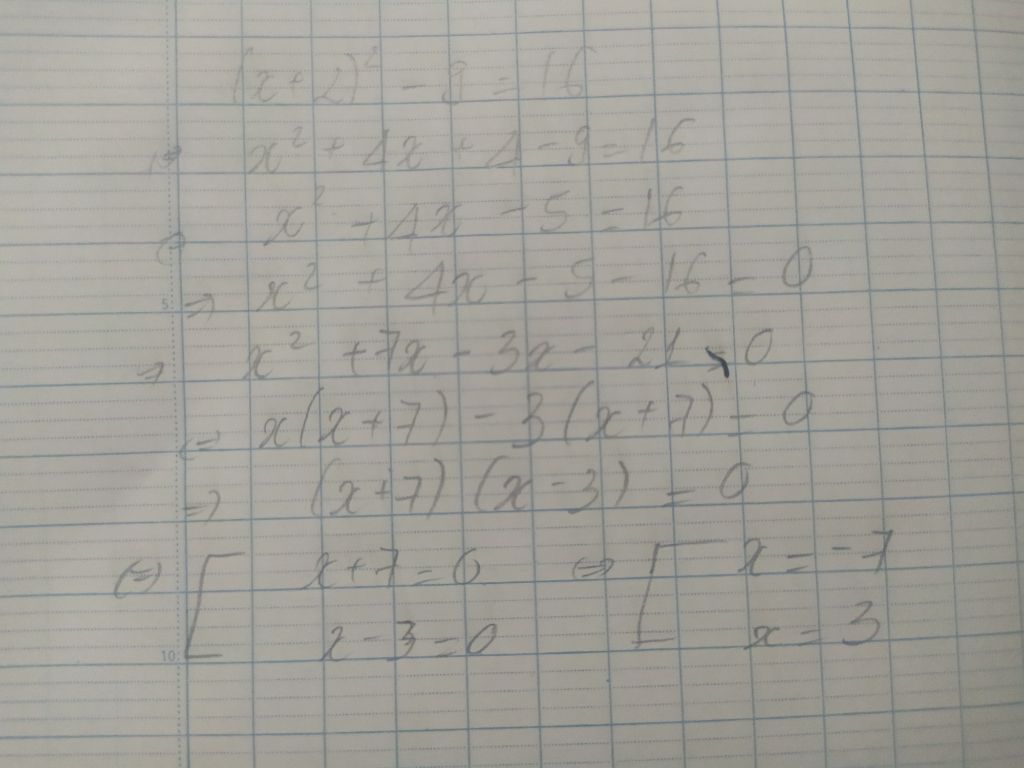 (x+2)² - 9 = 16
⇔ x² + 4x + 4 - 9 = 16
⇔ x² + 4x - 5 = 16
5 ⇒ x² + 4x - 5 - 16 = 0
⇒ x² + 7x - 3x - 21 = 0
⇔ x(x+7) - 3(x+7) = 0
⇒ (x+7) (x-3) = 0
⇔ [ x+7=0 ⇔ [ x = -7
10 x-3=0 x = 3